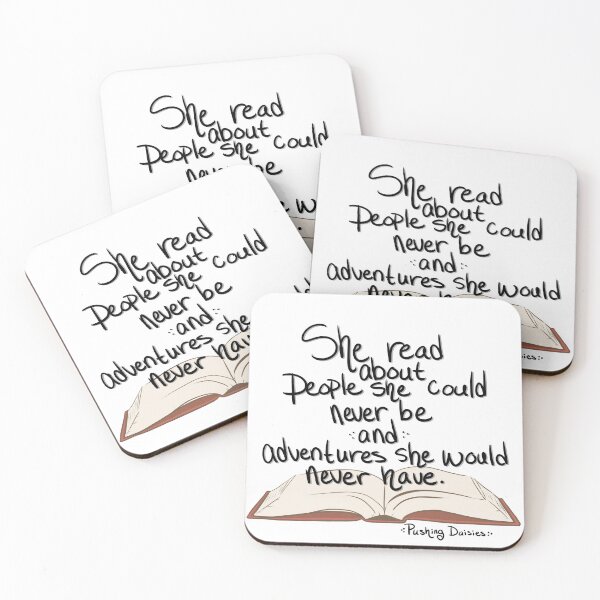 She read
about
People she could
never be
She read
about
People she could
never be
·:and:·
adventures she would
She read
about
People she could
never be
·:and:·
adventures she
never have
She read
about
People she could
never be
·:and:·
adventures she would
never have.
·:Pushing Daisies:·